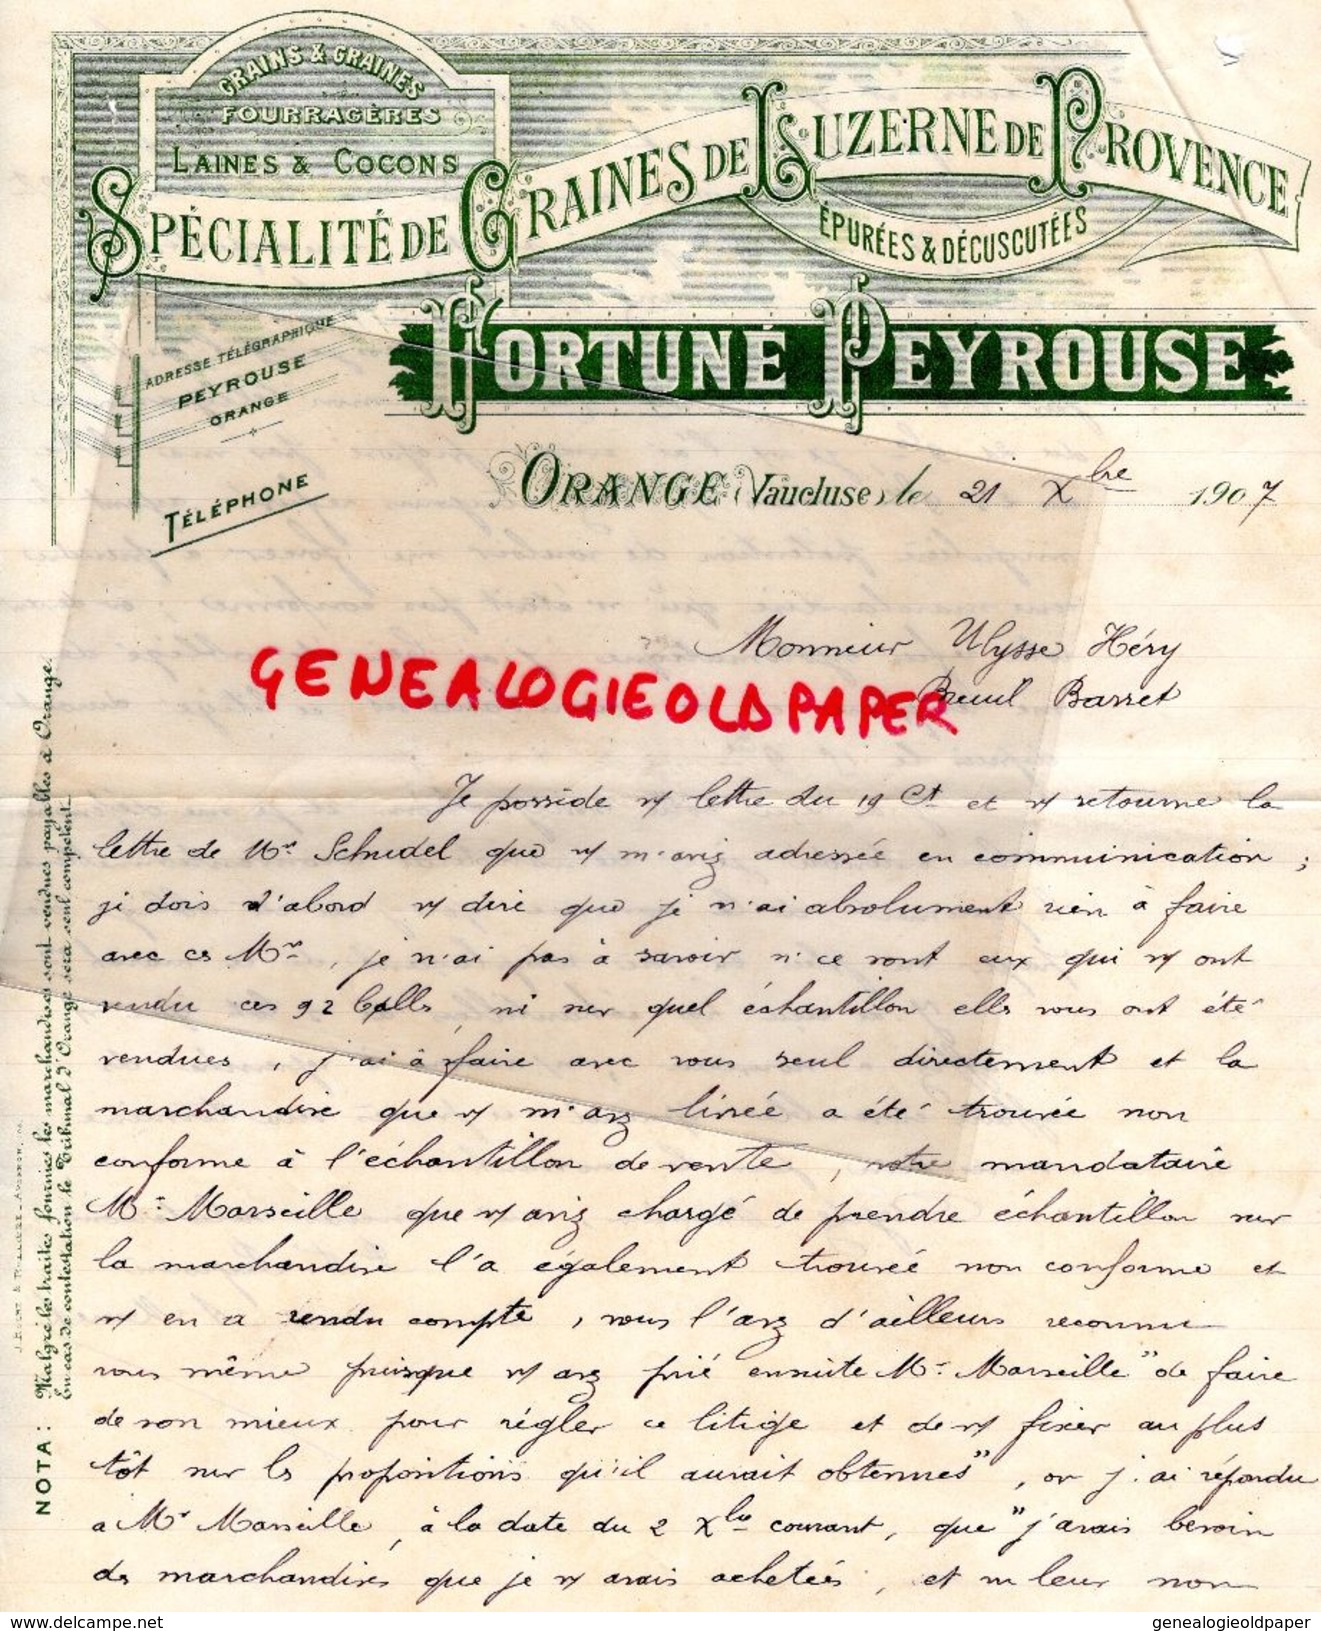 GRAINS & GRAINES
FOURRAGÈRES
LAINES & COCONS
SPÉCIALITÉ DE GRAINES DE LUZERNE DE PROVENCE
ÉPURÉES & DÉCUSCUTÉES
FORTUNÉ PEYROUSE
ADRESSE TÉLÉGRAPHIQUE
PEYROUSE
ORANGE
TÉLÉPHONE
ORANGE (Vaucluse) le 21 Xbre 1907
Monsieur Ulysse Héry
Breuil Barret
GENEALOGIEOLDPAPER
Je possède v/ lettre du 19 Ct et v/ retourne la
lettre de Mr. Schudel que v/ m'avez adressée en communication ;
je dois d'abord v/ dire que je n'ai absolument rien à faire
avec ces Mrs, je n'ai pas à savoir si ce sont eux qui v/ ont
vendu ces 92 balles, ni sur quel échantillon elles vous ont été
vendues, j'ai à faire avec vous seul directement et la
marchandise que v/ m'avez livrée a été trouvée non
conforme à l'échantillon de vente, notre mandataire
Mr. Marseille que v/ aviez chargé de prendre échantillon sur
la marchandise l'a également trouvée non conforme et
v/ en a rendu compte, vous l'avez d'ailleurs reconnu
vous même puisque v/ avez prié ensuite Mr. Marseille "de faire
de son mieux pour régler ce litige et de v/ fixer au plus
tôt sur les propositions qu'il aurait obtenues", or j'ai répondu
a Mr Marseille, à la date du 2 Xbre courant, que "j'avais besoin
des marchandises que je v/ avais achetées, et vu leur non
NOTA : Malgré les traites fournies les marchandises sont vendues payables à Orange.
En cas de contestation le Tribunal d'Orange sera seul compétent.
genealogieoldpaper
delcampe.net
genealogieoldpaper